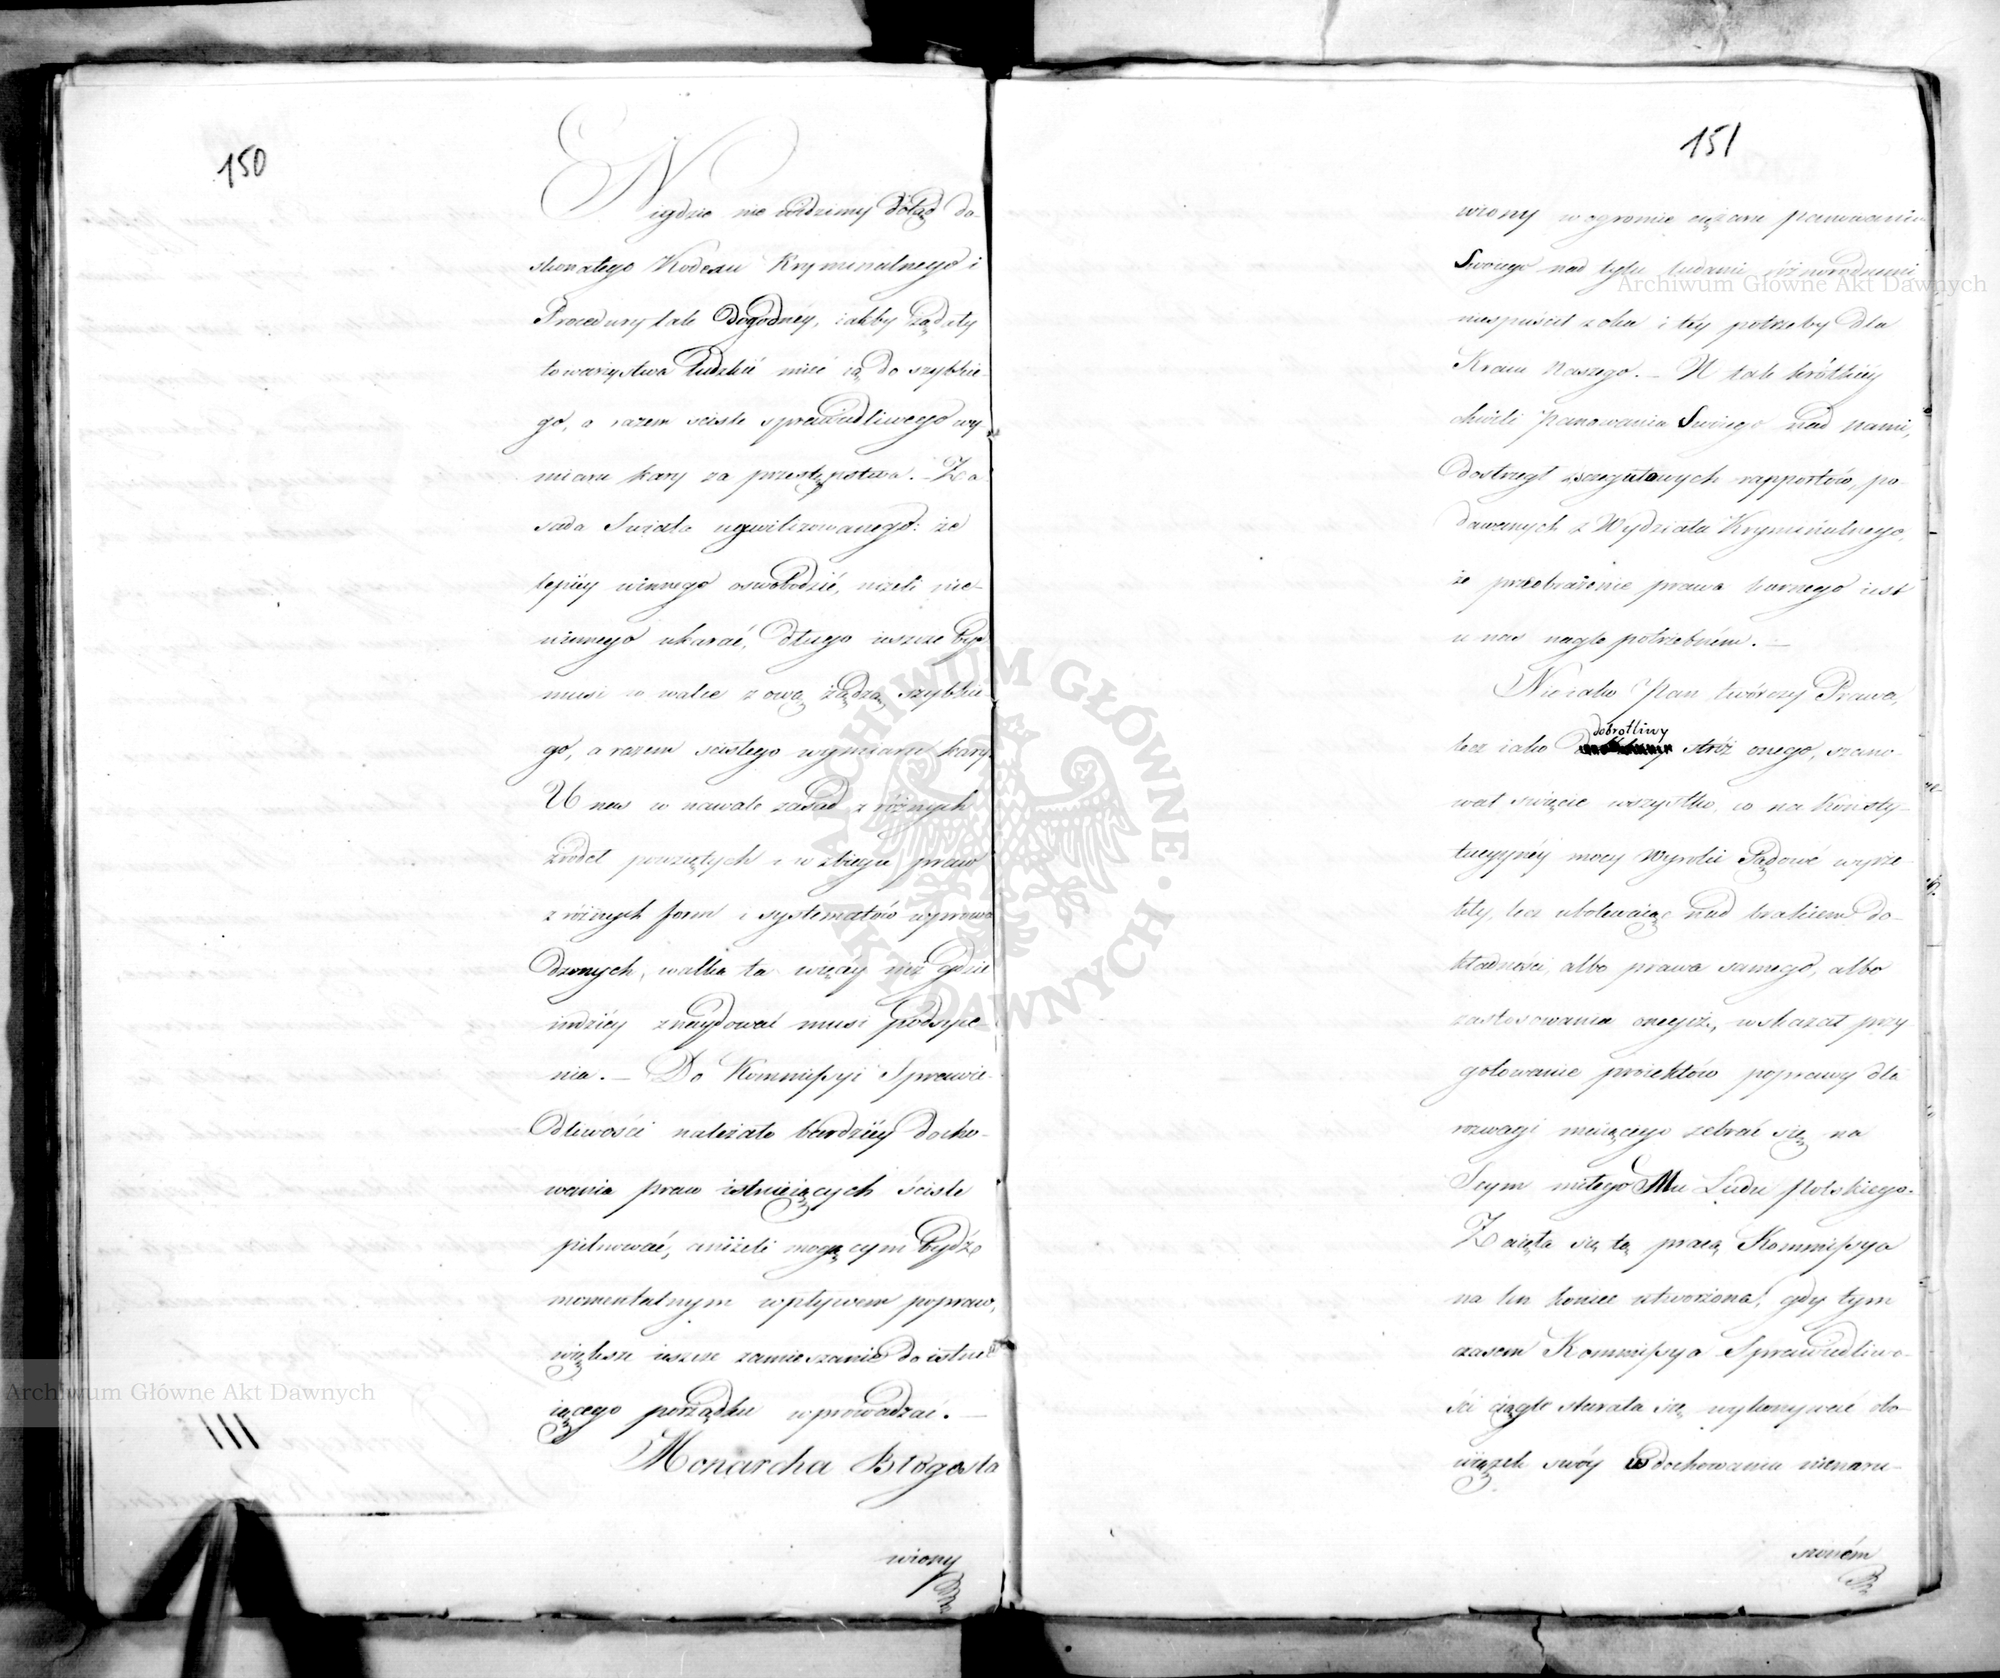 150
Nigdzie nie widzimy dotąd do-
skonałego Kodexu Kryminalnego i
Procedury tak dogodnéy, iakby żądały
towarzystwa ludzkié mieć ią do szybkie-
go, a razem ściśle sprawiedliwego wy-
miaru kary za przestępstwa. – Za-
sada Świata ucywilizowanego: że
lepiéy winnego oswobodzić, niżeli nie-
winnego ukarać, długo ieszcze być
musi w walce z ową żądzą szybkie-
go, a razem ścisłego wymiaru kary.
U nas w nawale zasad z różnych
źródeł powziętych i w zbiegu praw
z różnych form i systematów wprowa-
dzonych, walka ta więcéy niż gdzie
indziéy znaydować musi podsyce-
nia. – Do Kommissyi Sprawie-
dliwości należało bardziéy docho-
wania praw istnieiących ściśle
pilnować, aniżeli mogącym bydź
momentalnym wpływem popraw,
większe ieszcze zamieszanie do istnie-
iącego porządku wprowadzać. –
Monarcha Błogosła
wiony
151
wiony w ogromie ciężaru panowania
Swoiego nad tylu ludami różnorodnemi
niespuścił z oka i téy potrzeby dla
Kraiu Naszego. – W tak krótkiéy
chwili Panowania Swoiego nad nami,
dostrzegł z szczegułowych rapportów, po-
dawanych z Wydziału Kryminalnego,
że przeobrażenie prawa karnego iest
u nas nagle potrzebném. –
Nie iako Pan twórczy Prawa,
dobrotliwy
lecz iako stróż onego, szano-
wał święcie wszystko, co na Konsty-
tucyynéy mocy Wyroki Sądowé wyrze-
kły, lecz ubolewaiąc nad brakiem do-
kładności, albo prawa samego, albo
zastosowania onegoż, wskazał przy-
gotowanie proiektów poprawy dla
rozwagi maiącego zebrać się na
Seym miłego Mu Ludu Polskiego.
Zaięła się tą pracą Kommissya
na ten koniec utworzona, gdy tym
czasem Kommissya Sprawiedliwo-
ści ciągle starała się wykonywać obo-
wiązek swóy w dochowaniu nienaru-
szoném
Archiwum Główne Akt Dawnych
Archiwum Główne Akt Dawnych
ARCHIWUM GŁÓWNE AKT DAWNYCH